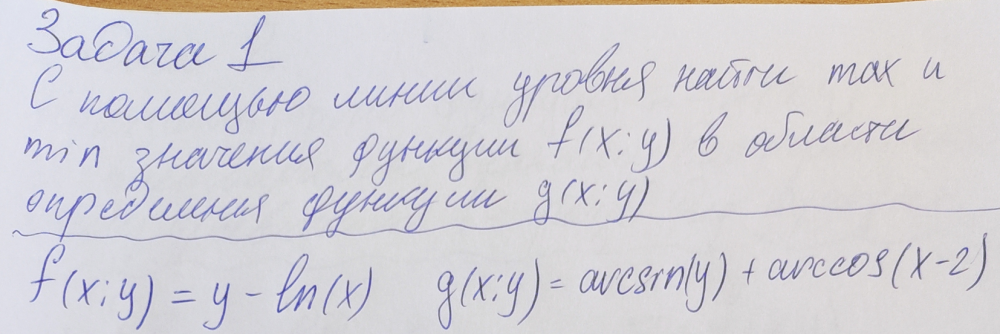 Задача 1
С помощью линии уровня найти max и
min значения функции f(x;y) в области
определения функции g(x;y)
f(x;y) = y - ln(x) g(x;y) = arcsin(y) + arccos(x-2)